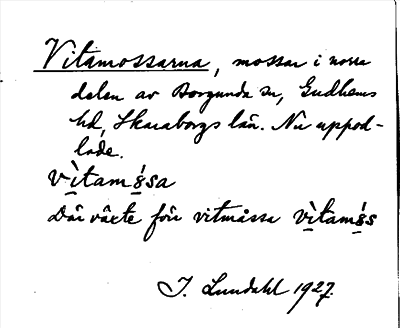 Vitamossarna, mossar i norra
delen av Borgunda sn, Gudhems
hd, Skaraborgs län. Nu uppod-
lade.
vìtamǻsa
Där växte förr vitmåssa vìtamǻs
I. Lundahl 1927.